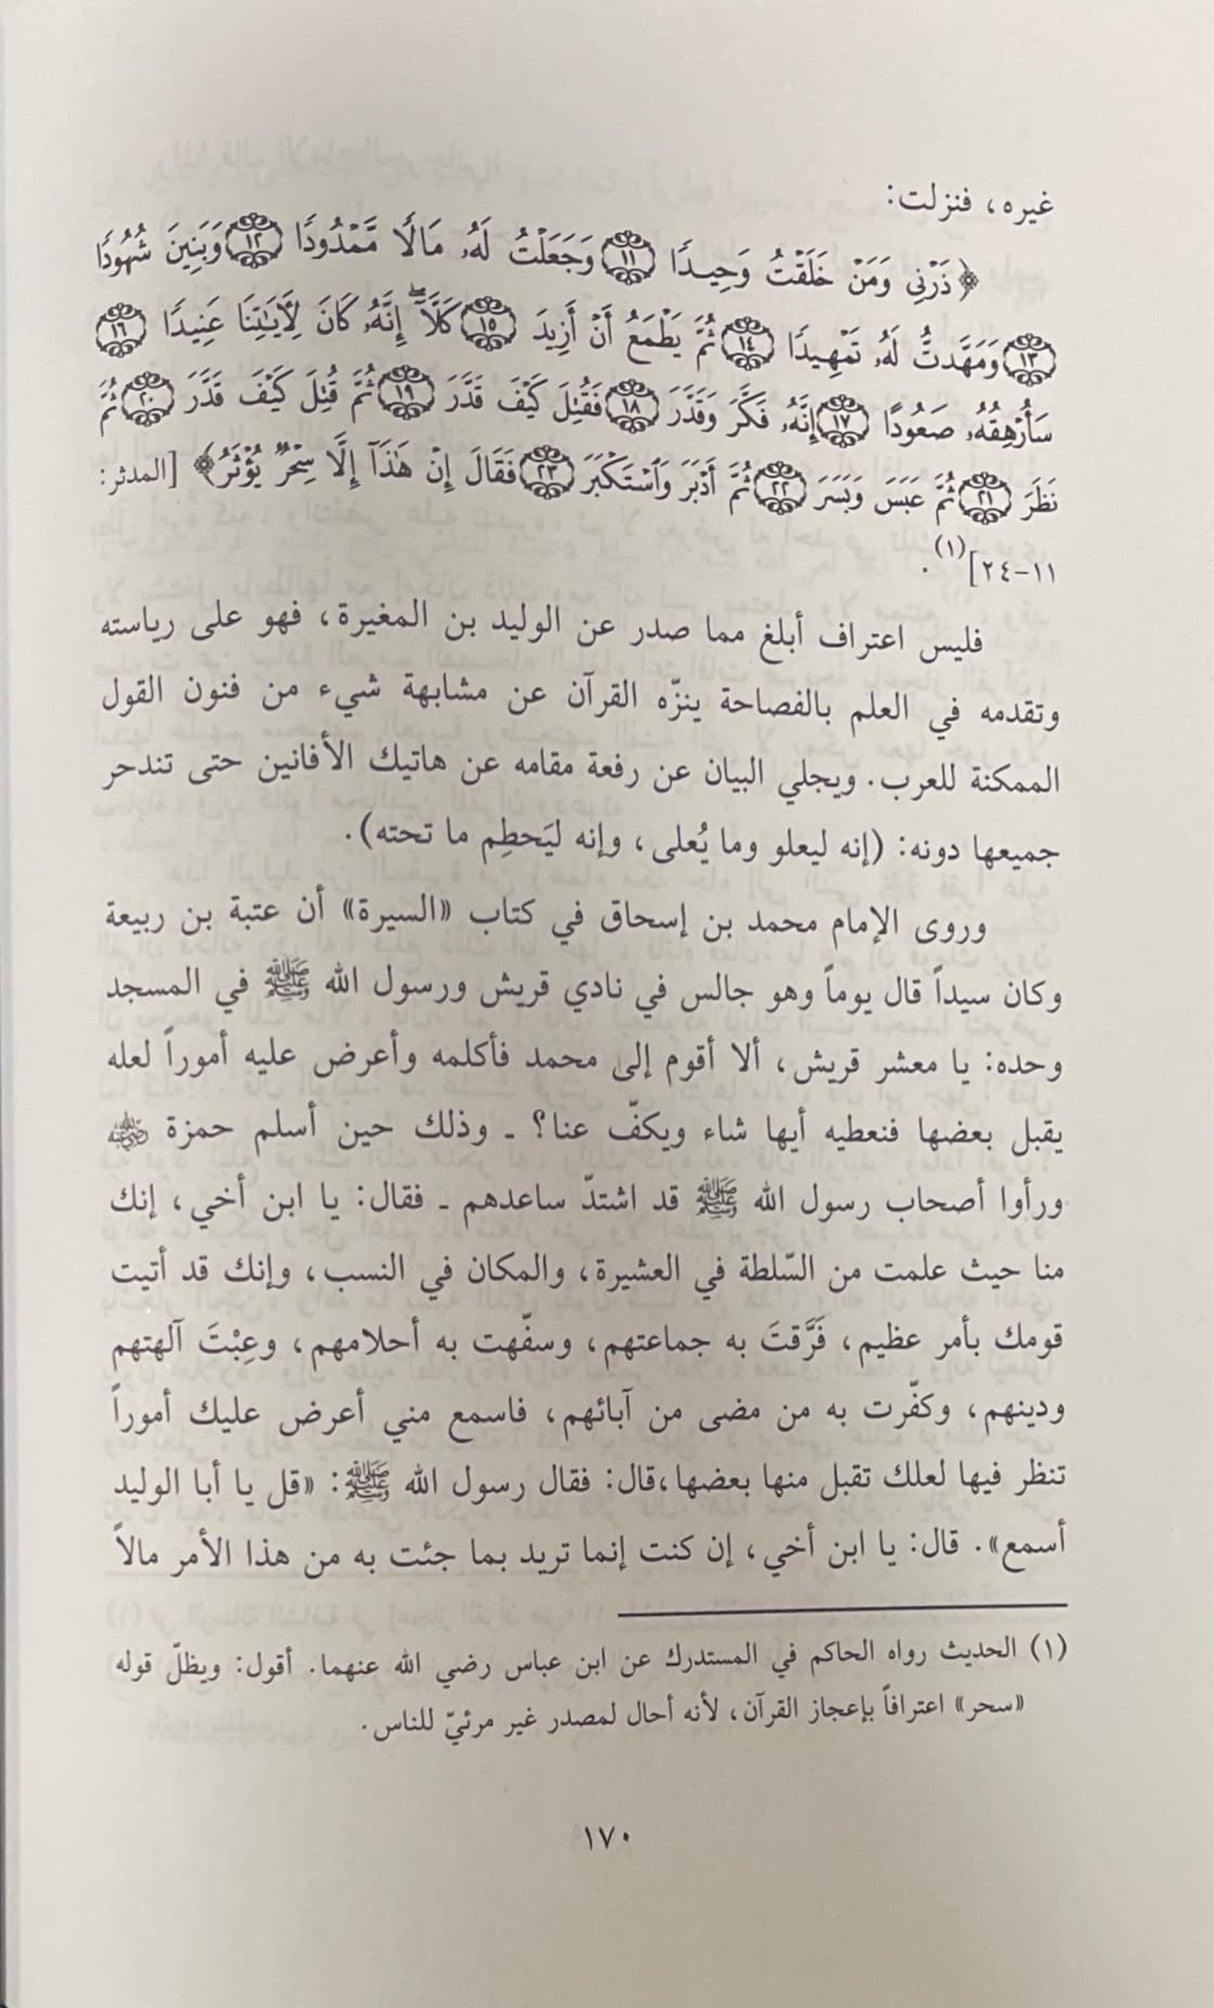 غيره، فنزلت:
﴿ذَرْنِي وَمَنْ خَلَقْتُ وَحِيدًا ١١ وَجَعَلْتُ لَهُۥ مَالًا مَّمْدُودًا ١٢ وَبَنِينَ شُهُودًا
١٣ وَمَهَّدتُّ لَهُۥ تَمْهِيدًا ١٤ ثُمَّ يَطْمَعُ أَنْ أَزِيدَ ١٥ كَلَّآ إِنَّهُۥ كَانَ لِآيَـٰتِنَا عَنِيدًا ١٦
سَأُرْهِقُهُۥ صَعُودًا ١٧ إِنَّهُۥ فَكَّرَ وَقَدَّرَ ١٨ فَقُتِلَ كَيْفَ قَدَّرَ ١٩ ثُمَّ قُتِلَ كَيْفَ قَدَّرَ ٢٠ ثُمَّ
نَظَرَ ٢١ ثُمَّ عَبَسَ وَبَسَرَ ٢٢ ثُمَّ أَدْبَرَ وَٱسْتَكْبَرَ ٢٣ فَقَالَ إِنْ هَـٰذَآ إِلَّا سِحْرٌ يُؤْثَرُ﴾ [المدثر:
١١-٢٤](١).
فليس اعتراف أبلغ مما صدر عن الوليد بن المغيرة، فهو على رياسته
وتقدمه في العلم بالفصاحة ينزّه القرآن عن مشابهة شيء من فنون القول
الممكنة للعرب. ويجلي البيان عن رفعة مقامه عن هاتيك الأفانين حتى تندحر
جميعها دونه: (إنه ليعلو وما يُعلى، وإنه ليَحطِم ما تحته).
وروى الإمام محمد بن إسحاق في كتاب «السيرة» أن عتبة بن ربيعة
وكان سيداً قال يوماً وهو جالس في نادي قريش ورسول الله ﷺ في المسجد
وحده: يا معشر قريش، ألا أقوم إلى محمد فأكلمه وأعرض عليه أموراً لعله
يقبل بعضها فنعطيه أيها شاء ويكفّ عنا؟ ـ وذلك حين أسلم حمزة رضي الله عنه
ورأوا أصحاب رسول الله ﷺ قد اشتدّ ساعدهم ـ فقال: يا ابن أخي، إنك
منا حيث علمت من السّلطة في العشيرة، والمكان في النسب، وإنك قد أتيت
قومك بأمر عظيم، فَرَّقتَ به جماعتهم، وسفّهت به أحلامهم، وعِبْتَ آلهتهم
ودينهم، وكفّرت به من مضى من آبائهم، فاسمع مني أعرض عليك أموراً
تنظر فيها لعلك تقبل منها بعضها،قال: فقال رسول الله ﷺ: «قل يا أبا الوليد
أسمع». قال: يا ابن أخي، إن كنت إنما تريد بما جئت به من هذا الأمر مالاً
(١) الحديث رواه الحاكم في المستدرك عن ابن عباس رضي الله عنهما. أقول: ويظلّ قوله
«سحر» اعترافاً بإعجاز القرآن، لأنه أحال لمصدر غير مرئيّ للناس.
١٧٠